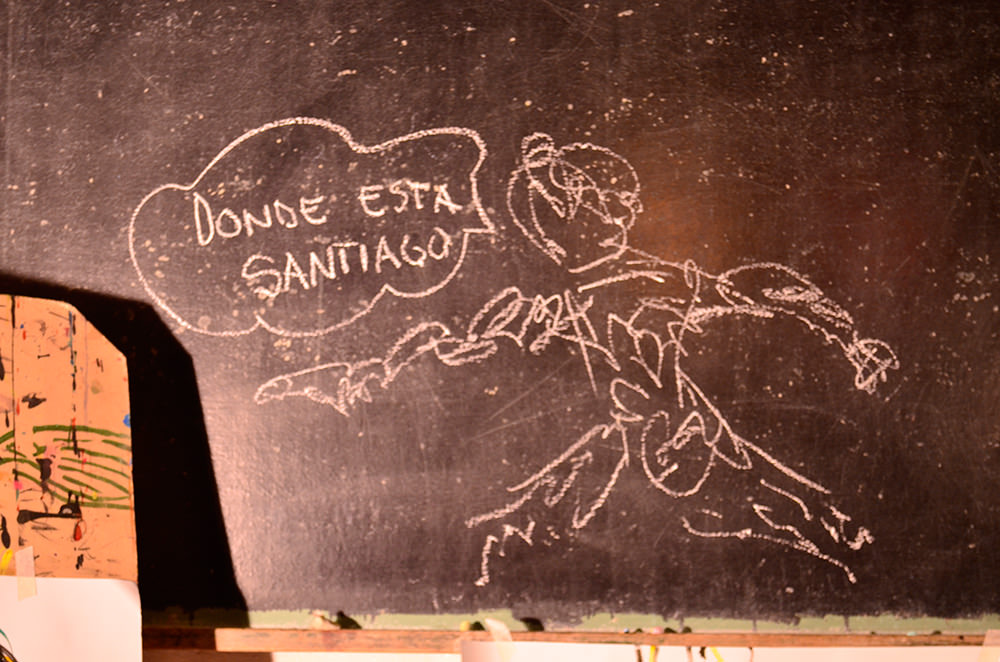 DONDE ESTA
SANTIAGO